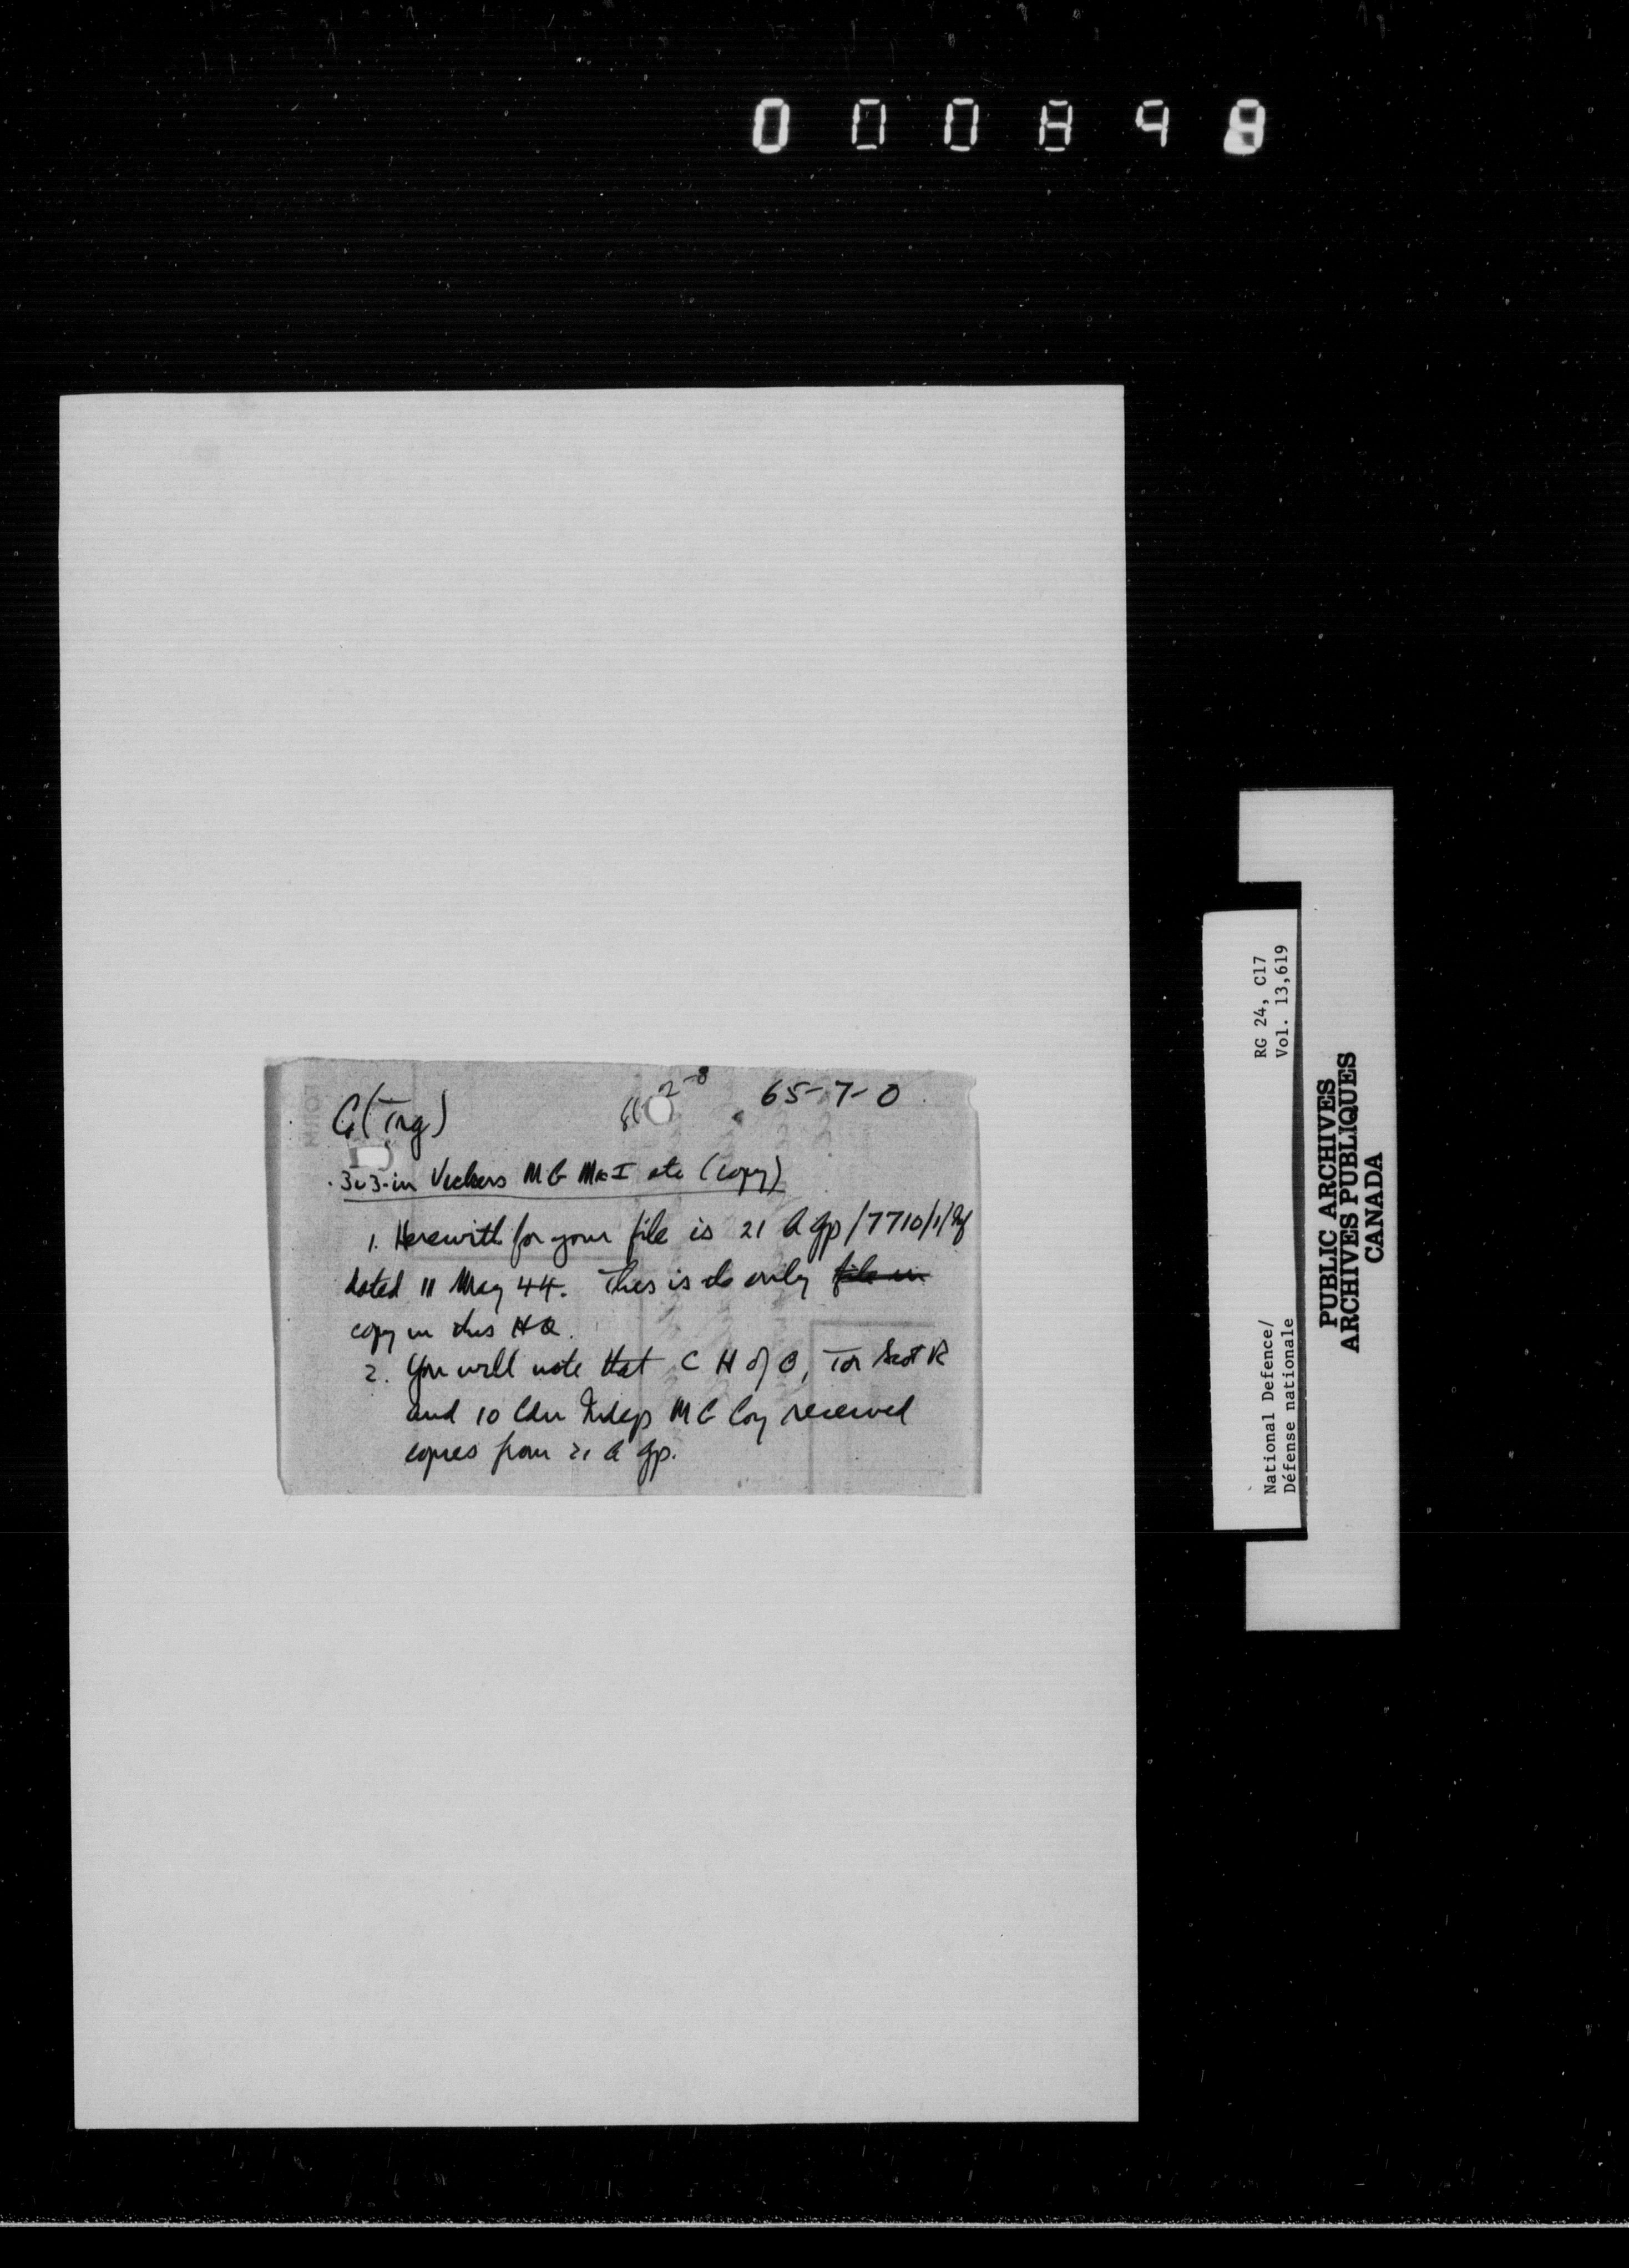 G(Trg)
2-8
65-7-0
.303-in Vickers MG Mk I etc (copy)
1. Herewith for your file is 21 A Gp/7710/1/
dated 11 May 44. This is the only file in
copy in this HQ.
2. You will note that C H of O, Tor Scot R
and 10 Cdn Indep MG Coy received
copies from 21 A Gp.
RG 24, C17
Vol. 13,619
National Defence/
Défense nationale
PUBLIC ARCHIVES
ARCHIVES PUBLIQUES
CANADA